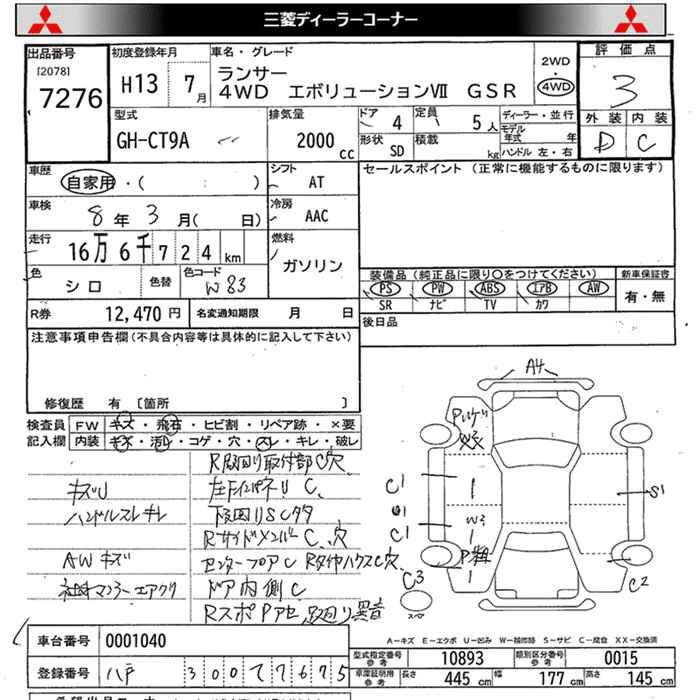 三菱ディーラーコーナー
出品番号 初度登録年月 車名・グレード 評価点
[2078]
7276 H13 7月 ランサー 2WD 3
4WD エボリューションⅦ GSR 4WD
外装 内装
D C
型式 排気量 ドア 定員 ディーラー・並行
GH-CT9A 2000cc 4 5人 モデル年式 年
形状 積載 ハンドル 左・右
SD kg
車歴 シフト セールスポイント (正常に機能するものに限ります)
自家用・( : ) AT
車検 冷房
8年 3月( 日) AAC
走行 燃料
16万 6千 7 2 4 km ガソリン
色 色替 色コード
シロ W83
装備品 (純正品に限り〇をつけてください) 新車保証書
PS PW ABS エアB AW 有・無
SR ナビ TV カワ
R券 12,470 円 名変通知期限 月 日 後日品
注意事項申告欄(不具合内容等は具体的に記入して下さい)
修復歴 有 〔箇所 〕
検査員 FW キズ・飛石・ヒビ割・リペア跡・×要
記入欄 内装 キズ・汚レ・コゲ・穴・スレ・キレ・破レ
R足回り取付部C穴
キズU
ハンドルスレキレ 下廻りSCタタ
RサイドメンバーC、穴
AWキズ センターフロアC RタイヤハウスC穴
社外マフラーエアクリ ドア内側C
足回り異音
A4
C1
C1
C3
S1
C2
W3
スペ
A-キズ E-エクボ U-凹み W-補修跡 S-サビ C-腐食 XX-交換済
車台番号 0001040
型式指定番号 参考 10893 類別区分番号 参考 0015
登録番号 八戸 300 て 7675
車庫証明用 参考 長さ 445 cm 幅 177 cm 高さ 145 cm